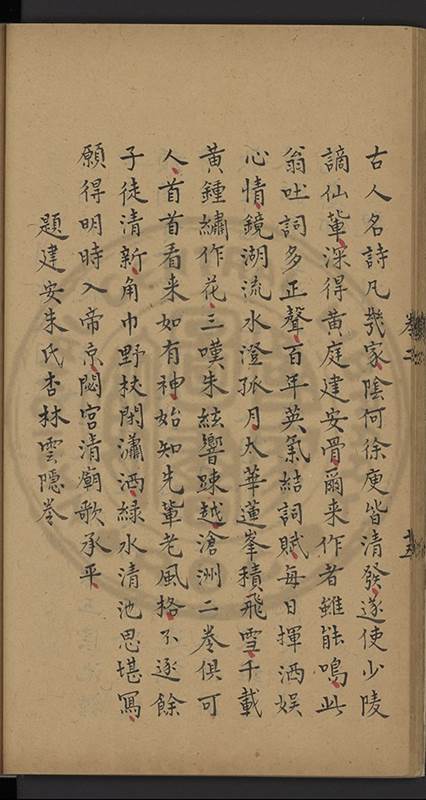 古人名詩凡幾家陰何徐庾皆清發遂使少陵
謫仙輩深得黃庭建安骨爾来作者雖能鳴此
翁吐詞多正聲百年英氣結詞賦每日揮洒娱
心情鏡湖流水澄孤月太華蓮峯積飛雪千載
黃鍾繡作花三嘆朱絃響踈越滄洲二卷俱可
人首首看来如有神始知先軰老風格不逐餘
子徒清新角巾野扶閑瀟洒緑水清池思堪寫
願得明時入帝京閟宮清廟歌承平
題建安朱氏杏林雲隱卷